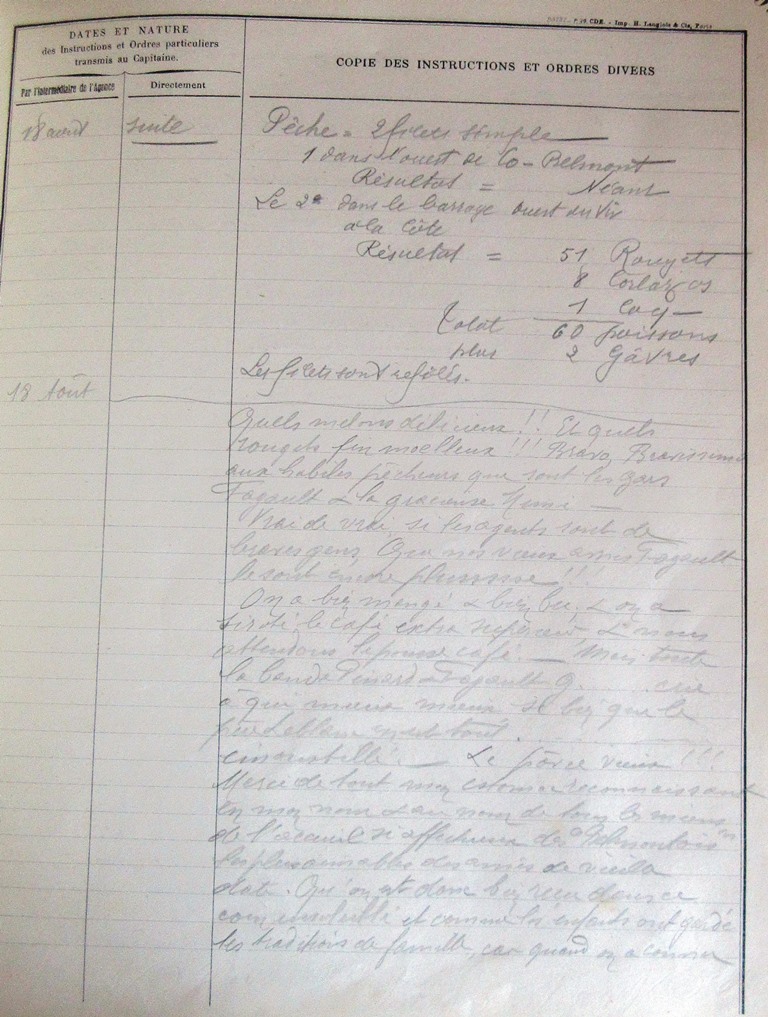 Imp. H. Langlois & Cie, Paris
DATES ET NATURE
des Instructions et Ordres particuliers
transmis au Capitaine.
Par l'Intermédiaire de l'Agence
Directement
COPIE DES INSTRUCTIONS ET ORDRES DIVERS
18 août suite Pêche = 2 filets simple
1 dans l'ouest de Belmont
Résultat = Néant
Le 2e dans le barrage ouest du
à la Côte
Résultat = 51 Rougets
8
1 Coq
Total 60 poissons
plus 2 Gâvres
Les filets sont
18 Août
Quels melons délicieux !! Et quels
rougets fin moelleux !!! Bravo, Bravissimo
aux habiles pêcheurs que sont les gars
Fagault & la gracieuse
Vrai de vrai, si les agents sont de
braves gens, Que nos vieux amis Fagault
le sont encore plusssss !!
On a bien mangé & bien bu, & on a
siroté le café extra supérieur, & nous
attendons le pousse café. — Mais toute
la bande & Fagault
à qui mieux mieux si bien que le
tout
Le vieux !!!
Merci de tout mon estomac reconnaissant
en mon nom & au nom de tous les miens
de l'accueil si affectueux des
les plus aimables des amis de vieille
date. Qu'on est donc bien dans ce
coin ensoleillé et comme les enfants ont gardé
les traditions de famille, car quand on a connu